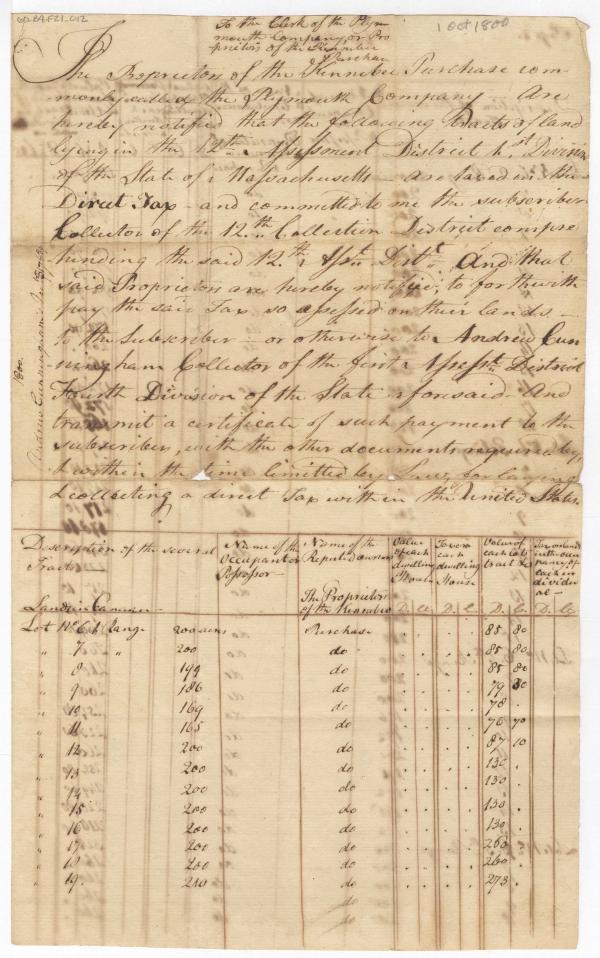 GP.84.F21.012
1 Oct 1800
To the Clerk of the Plym
mouth Company, or Pro
prietors of the Kennebec
Purchase
The Proprietors of the Kennebec Purchase com-
monly called the Plymouth Company - Are
hereby notified that the following Tracts of land
lying in the 12th Assessment District 4st Division
of the State of Massachusetts - are taxed in the
Direct Tax - and committed to me the subscriber
Collector of the 12.th Collection District compre
hending the said 12.th Asst Dist.t And that
said Proprietors are hereby notified, to forthwith
pay the said Tax so assessed on their lands -
to the Subscriber - or otherwise to Andrew Cun
ningham Collector of the first District
Fourth Division of the State aforesaid - And
transmit a certificate of such payment to the
subscriber, with the other documents required by
within the time limitted by Law, for laying
& collecting a direct Tax within the United States.
1800.
Description of the several Tracts -
Name of the Occupant or Possessor
Name of the Reputed owners
Value of each dwelling House
Tax on each dwelling House
Value of each lot tract &c
Tax on lands of each individual -
Lands in
The Proprietors of the Kennebec D. C. D. C. D. C. D. C.
Lot No 6 1 Range 200 acres Purchase 85 80
" 7 " 200 do 85 80
" 8 199 do 85 80
" 9 186 do 79 80
" 10 169 do 78 .
" 11 165 do 70 70
" 12 200 do 87 10
" 13 200 do 130 .
" 14 200 do 130 .
" 15 200 do 130 .
" 16 200 do 130 .
" 17 200 do 260 .
" 18 200 do 260 .
" 19. 210 do 273 .
do
do